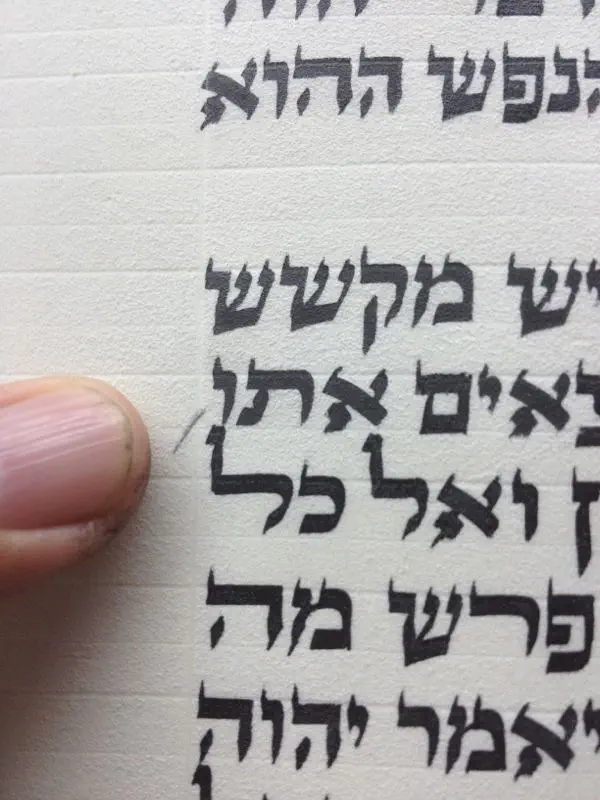 הנפש ההוא
יש מקשש
צאים אתו
ן ואל כל
פרש מה
יאמר יהוה